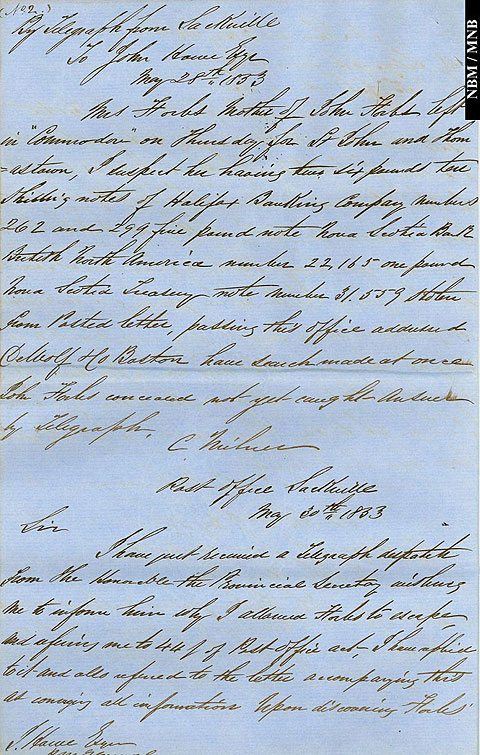 (No 2.)
By Telegraph from Sackville
To John Howe Esqr
May 28th 1853
Mrs Forbs Mother of John Forbs left
in "Commodore" on Thursday for St John and Thom
=astown, I suspect her having two six pounds ten
Shilling notes of Halifax Banking Company numbers
262 and 299 five pound note Nova Scotia Bank
British North America number 22,165 one pound
Nova Scotia Treasury note number 31,559 stolen
from Posted letter, passing this office addressed
DeWolf & Co Boston have search made at once
John Forbes concealed not yet caught answer
by Telegraph.
C Milner
Post Office Sackville
May 30th 1853
Sir
I have just received a Telegraph dispatch
from the Honorable the Provincial Secretary wishing
me to inform him why I allowed Forbs to escape,
and refering me to 44 § of Post Office act, I have applied
to it and also refered to the letter accompanying this
as conveying all information Upon discovering Forbs'
J. Howe Esqr
NBM / MNB